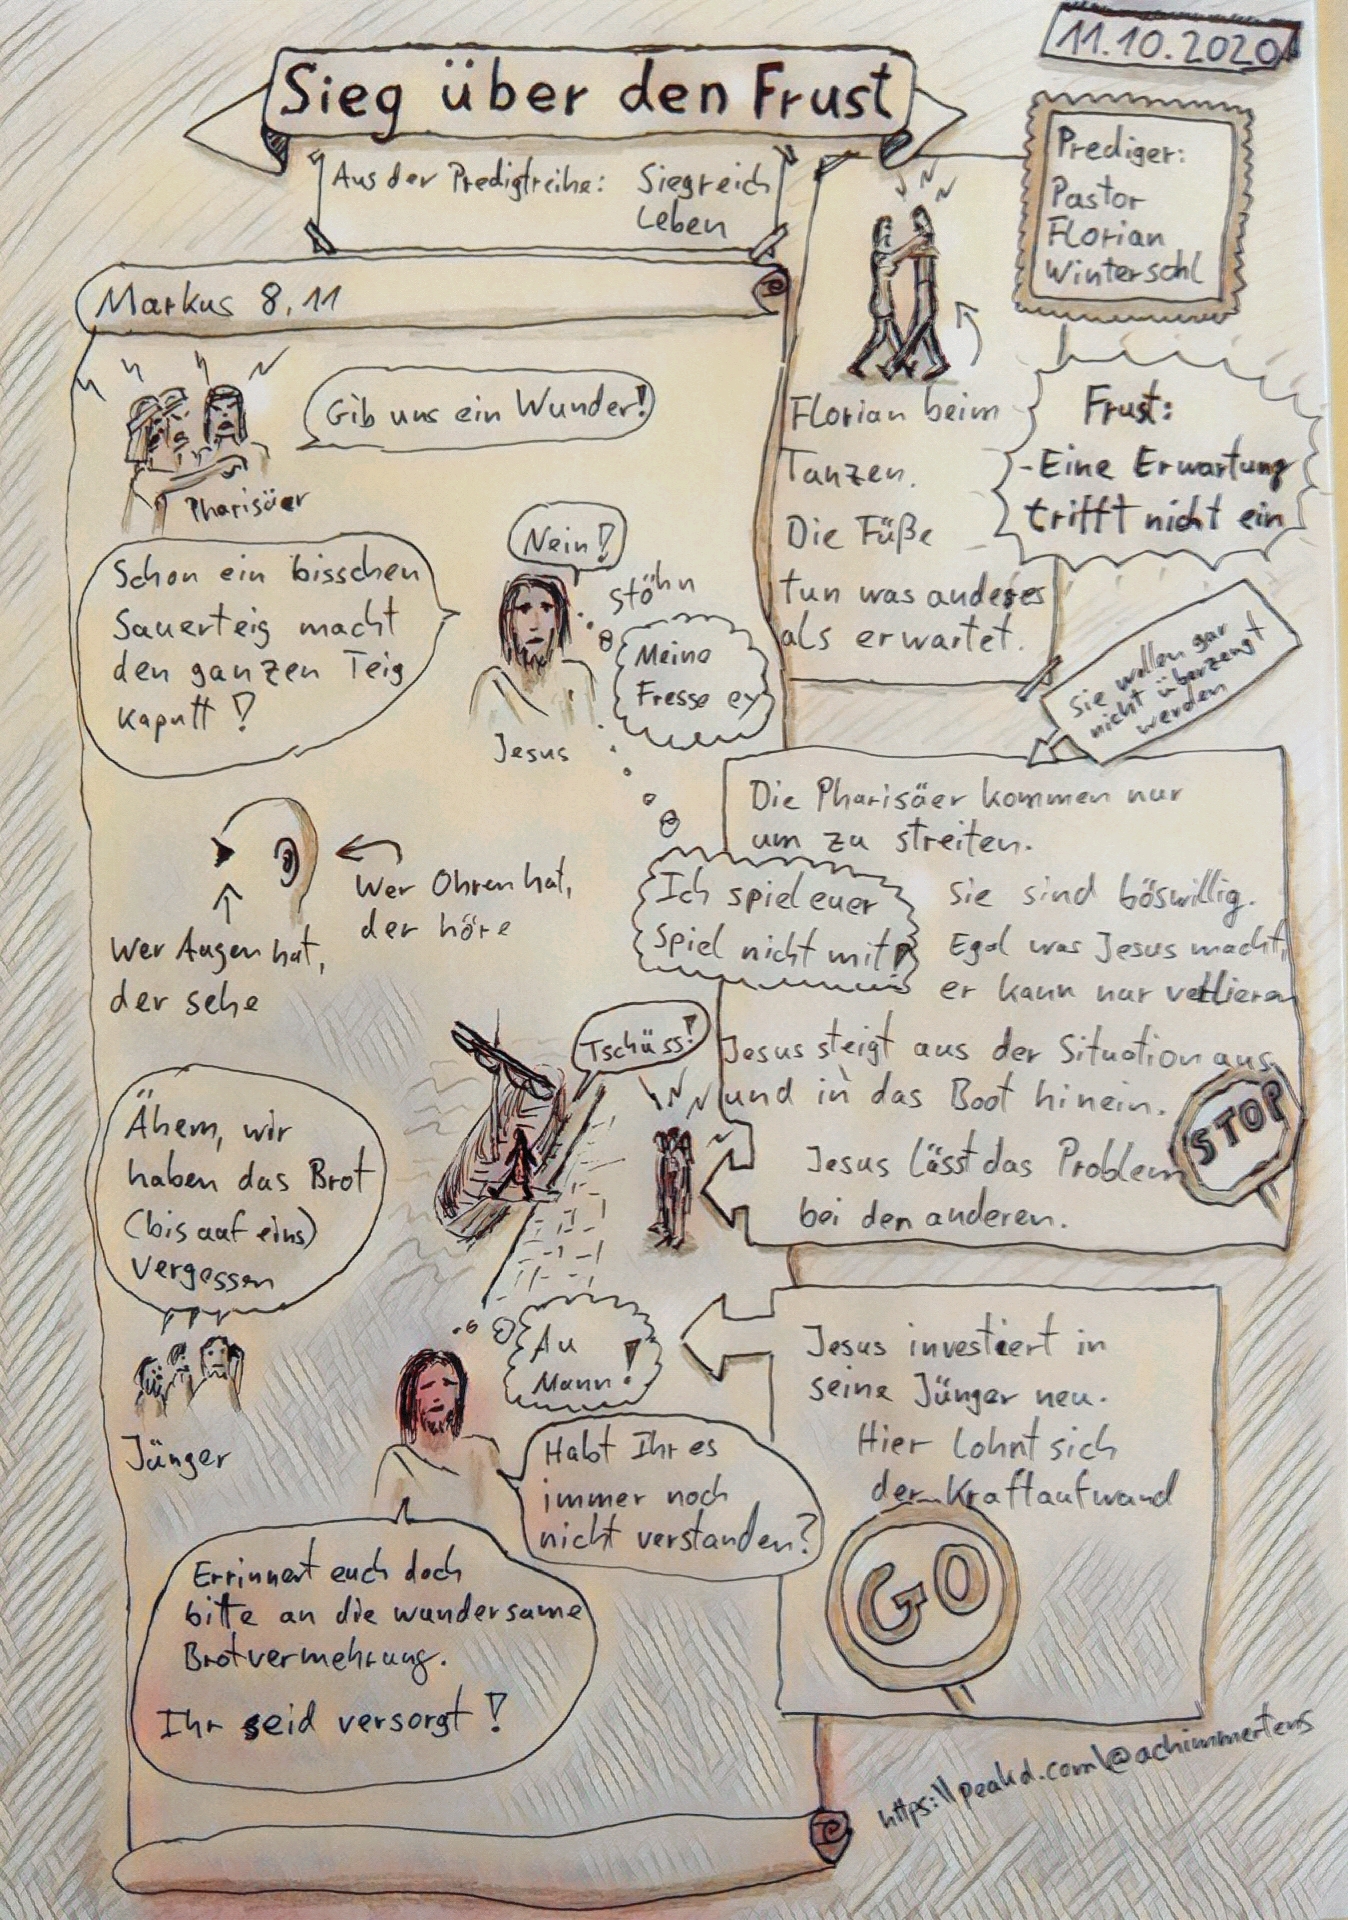 11.10.2020
Sieg über den Frust
Aus der Predigtreihe: Siegreich
Leben
Prediger:
Pastor
Florian
Winterschl
Markus 8,11
Gib uns ein Wunder!
Pharisäer
Florian beim
Tanzen.
Die Füße
tun was anderes
als erwartet.
Frust:
-Eine Erwartung
trifft nicht ein
Nein!
Stöhn
Meine
Fresse ey
Jesus
Schon ein bisschen
Sauerteig macht
den ganzen Teig
kaputt!
Sie wollen gar
nicht überzeugt
werden
Die Pharisäer kommen nur
um zu streiten.
Sie sind böswillig.
Egal was Jesus macht,
er kann nur verlieren
Ich spiel euer
Spiel nicht mit!
Wer Ohren hat,
der höre
Wer Augen hat,
der sehe
Tschüss!
Jesus steigt aus der Situation aus
und in das Boot hinein.
STOP
Jesus lässt das Problem
bei den anderen.
Ähem, wir
haben das Brot
(bis auf eins)
vergessen
Jünger
Au
Mann!
Habt Ihr es
immer noch
nicht verstanden?
Jesus investiert in
seine Jünger neu.
Hier lohnt sich
der Kraftaufwand
GO
Errinnert euch doch
bitte an die wundersame
Brotvermehrung.
Ihr seid versorgt!
https:\\peakd.com\@achimmertens